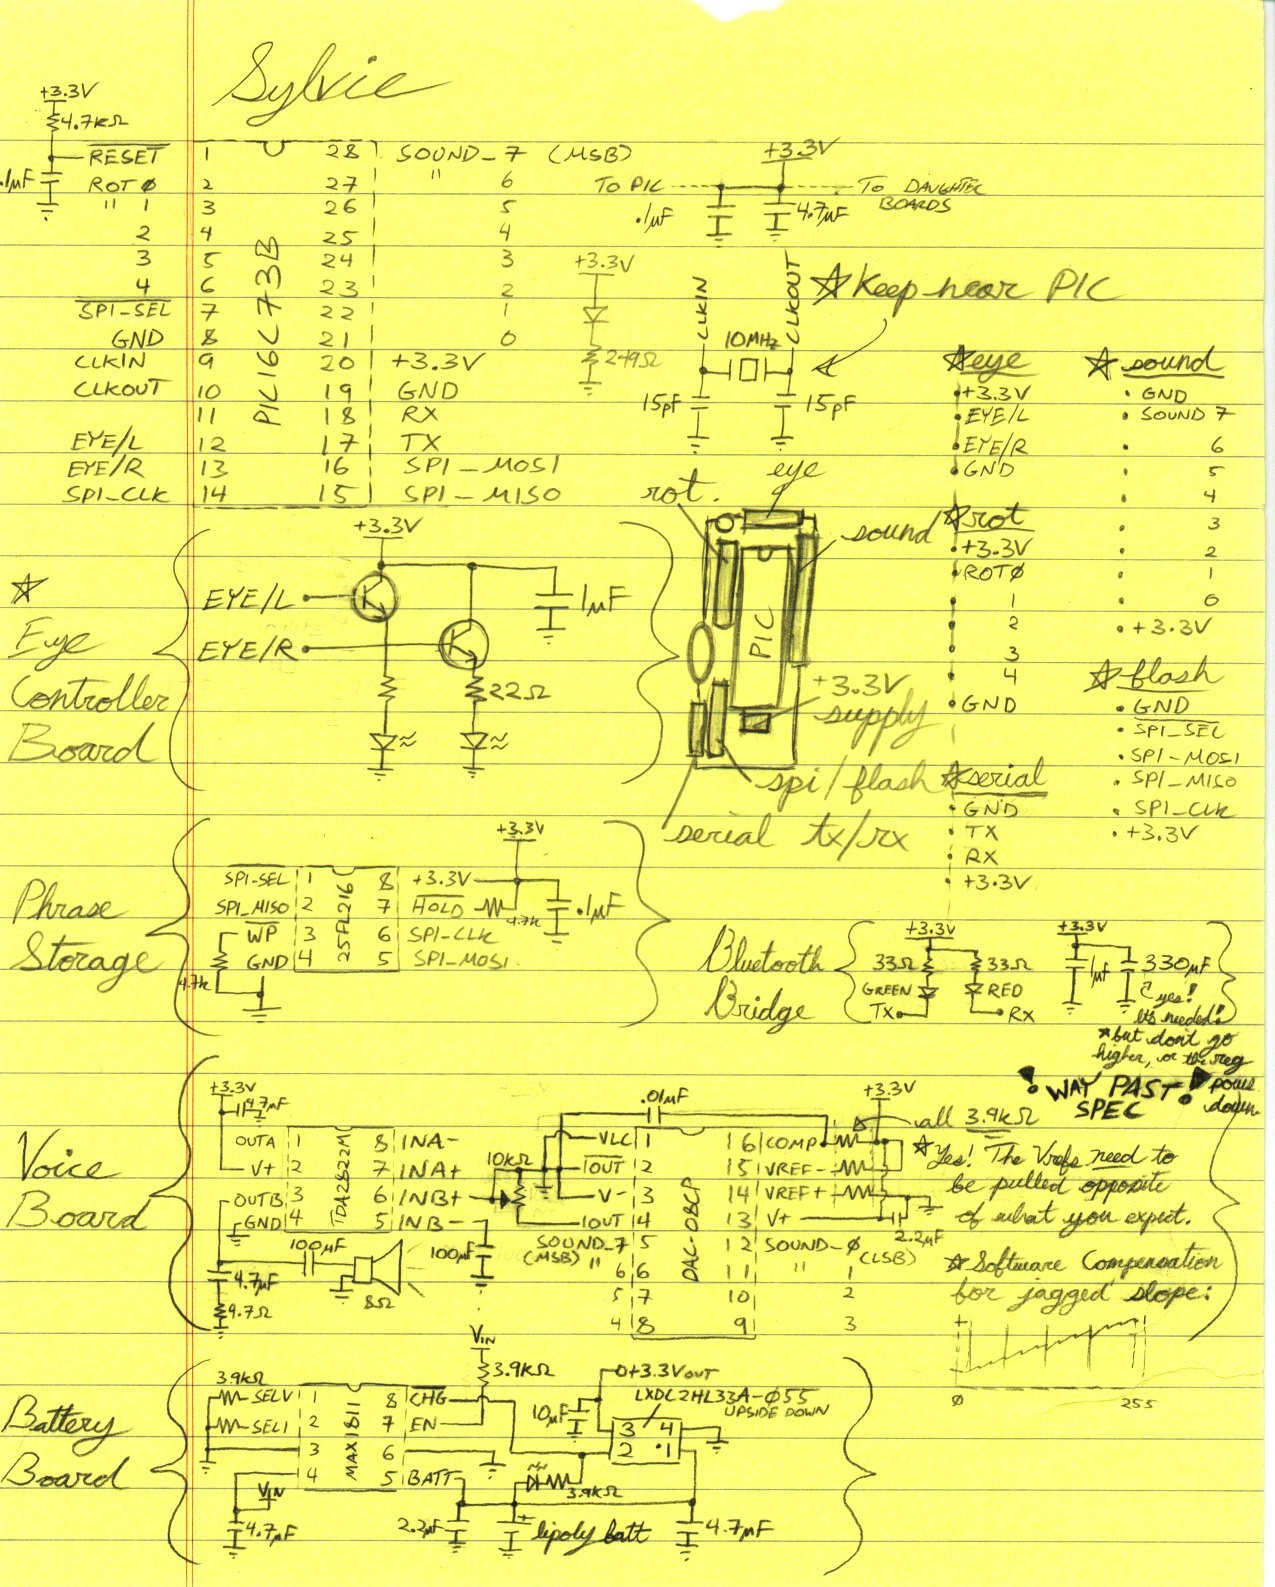 Sylvie
+3.3V
4.7KΩ
.1μF
RESET 1 28 SOUND_7 (MSB)
ROT0 2 27 " 6
" 1 3 26 5
2 4 25 4
3 5 24 3
4 6 23 2
SPI-SEL 7 22 1
GND 8 21 0
CLKIN 9 20 +3.3V
CLKOUT 10 19 GND
11 18 RX
EYE/L 12 17 TX
EYE/R 13 16 SPI_MOSI
SPI_CLK 14 15 SPI-MISO
PIC16C73B
+3.3V
TO PIC
TO DAUGHTER
BOARDS
.1μF
4.7μF
+3.3V
249Ω
CLKIN
CLKOUT
10MHz
15pF
15pF
☆ Keep near PIC
☆ eye
+3.3V
EYE/L
EYE/R
GND
☆ rot
+3.3V
ROT0
1
2
3
4
GND
☆ serial
GND
TX
RX
+3.3V
☆ sound
GND
SOUND 7
6
5
4
3
2
1
0
+3.3V
☆ flash
GND
SPI_SEL
SPI-MOSI
SPI-MISO
SPI_CLK
+3.3V
rot.
eye
sound
PIC
+3.3V
supply
spi/flash
serial tx/rx
☆
Eye
Controller
Board
+3.3V
EYE/L
EYE/R
1μF
22Ω
Phrase
Storage
+3.3V
SPI-SEL 1 8 +3.3V
SPI_MISO 2 7 HOLD
WP 3 6 SPI-CLK
GND 4 5 SPI_MOSI
25FL216
4.7k
4.7k
.1μF
Bluetooth
Bridge
+3.3V
33Ω 33Ω
GREEN RED
TX RX
+3.3V
1μF
330μF
yes!
It's needed!
*but don't go
higher, or the reg
pows
down.
! WAY PAST !
SPEC
Voice
Board
+3.3V
4.7μF
OUTA 1 8 INA-
V+ 2 7 INA+
OUTB 3 6 INB+
GND 4 5 INB-
TDA2822M
100μF
4.7μF
4.7Ω
8Ω
100μF
10KΩ
.01μF
+3.3V
all 3.9KΩ
VLC 1 16 COMP
IOUT 2 15 VREF-
V- 3 14 VREF+
IOUT 4 13 V+
SOUND_7 5 12 SOUND-0
(MSB) " (LSB)
6 6 11 " 1
5 7 10 2
4 8 9 3
DAC-08CP
2.2μF
☆ Yes! The Vrefs need to
be pulled opposite
of what you expect.
☆ Software Compensation
for jagged slope:
+
-
0 255
Battery
Board
3.9KΩ
SELV 1 8 CHG
SELI 2 7 EN
3 6
4 5 BATT
MAX1811
VIN
3.9KΩ
VIN
4.7μF
+3.3VOUT
LXDC2HL33A-055
UPSIDE DOWN
10μF
3 4
2 1
3.9KΩ
2.2μF
+
lipoly batt
4.7μF